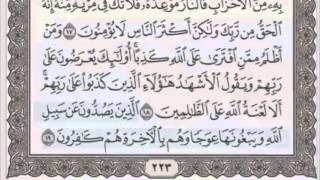 بِهِۦ مِنَ ٱلْأَحْزَابِ فَٱلنَّارُ مَوْعِدُهُۥ فَلَا تَكُ فِى مِرْيَةٍ مِّنْهُ إِنَّهُ
ٱلْحَقُّ مِن رَّبِّكَ وَلَٰكِنَّ أَكْثَرَ ٱلنَّاسِ لَا يُؤْمِنُونَ ١٧ وَمَنْ
أَظْلَمُ مِمَّنِ ٱفْتَرَىٰ عَلَى ٱللَّهِ كَذِبًا أُو۟لَٰٓئِكَ يُعْرَضُونَ عَلَىٰ
رَبِّهِمْ وَيَقُولُ ٱلْأَشْهَٰدُ هَٰٓؤُلَآءِ ٱلَّذِينَ كَذَبُوا۟ عَلَىٰ رَبِّهِمْ
أَلَا لَعْنَةُ ٱللَّهِ عَلَى ٱلظَّٰلِمِينَ ١٨ ٱلَّذِينَ يَصُدُّونَ عَن سَبِيلِ
ٱللَّهِ وَيَبْغُونَهَا عِوَجًا وَهُم بِٱلْأَخِرَةِ هُمْ كَٰفِرُونَ ١٩
٢٢٣